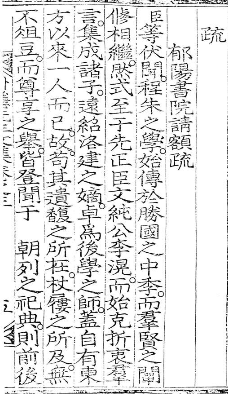 疏
郁陽書院請額疏
臣等伏聞。程朱之學。始傳於勝國之中季。而羣賢之闡
修相繼。式至于先正臣文純公李滉。而始克折衷羣
言。集成諸子。遠紹洛建之嫡。卓爲後學之師。蓋自有東
方以來一人而已。故苟其遺馥之所在杖屨之所及。無
不俎豆。而尊享之擧。皆登聞于 朝列之祀典。則前後